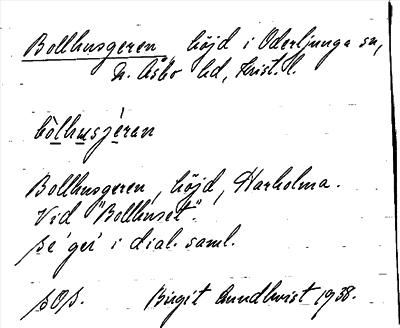 Bollhusgeren, höjd i Oderljunga sn,
N. Åsbo hd, Krist. l.
bòlhusjéran
Bollhusgeren, höjd, Harholma.
Vid "Bollhuset".
Se 'ger' i dial. saml.
SOS. Birgit Sundkvist 1938.